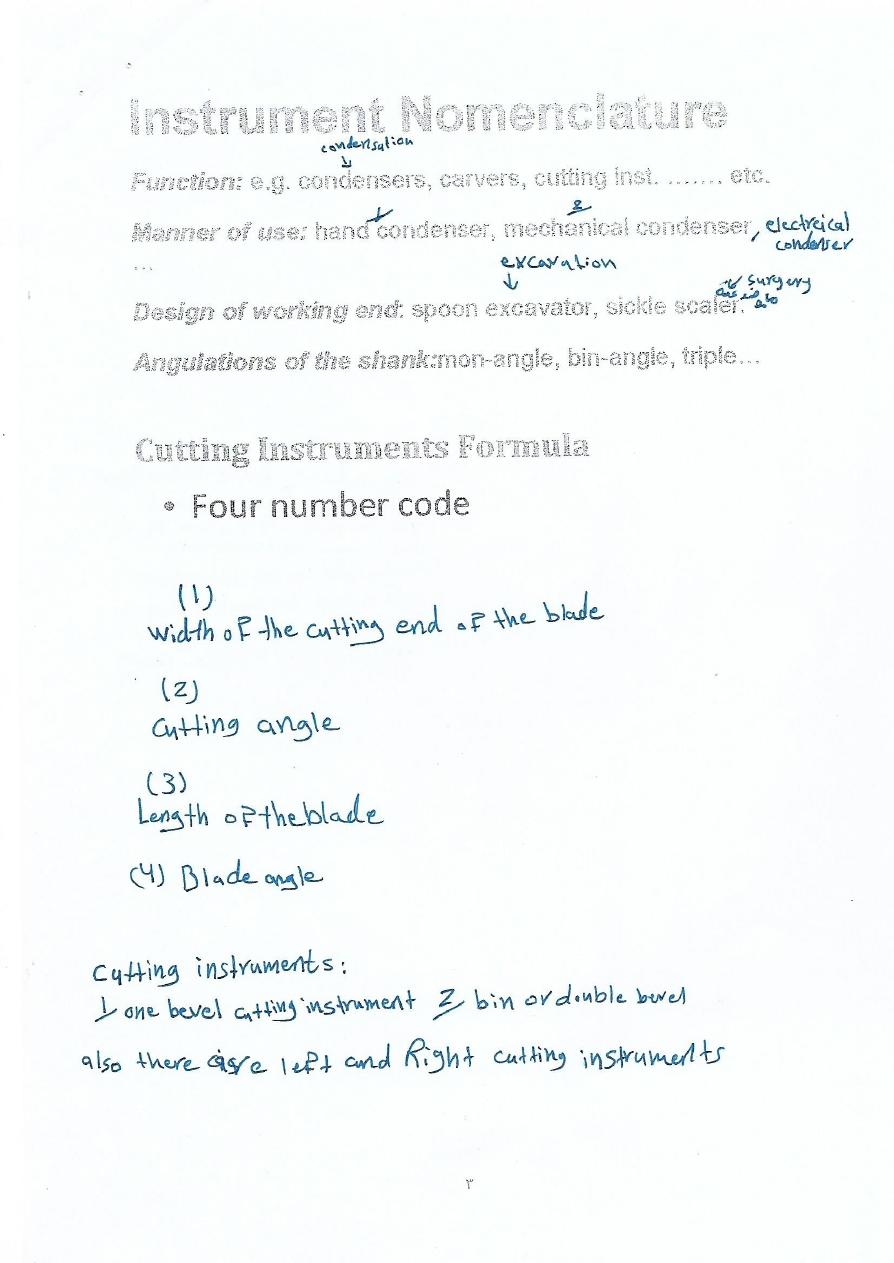 Instrument Nomenclature
condensation
Function: e.g. condensers, carvers, cutting inst. ........ etc.
1 2
Manner of use: hand condenser, mechanical condenser, electreical
condenser
...
excavation
surgery
Design of working end: spoon excavator, sickle scaler.
Angulations of the shank:mon-angle, bin-angle, triple...
Cutting Instruments Formula
• Four number code
(1)
width of the cutting end of the blade
(2)
Cutting angle
(3)
Length of the blade
(4) Blade angle
Cutting instruments:
1 one bevel cutting instrument 2 bin or double bevel
also there are left and Right cutting instruments
٣